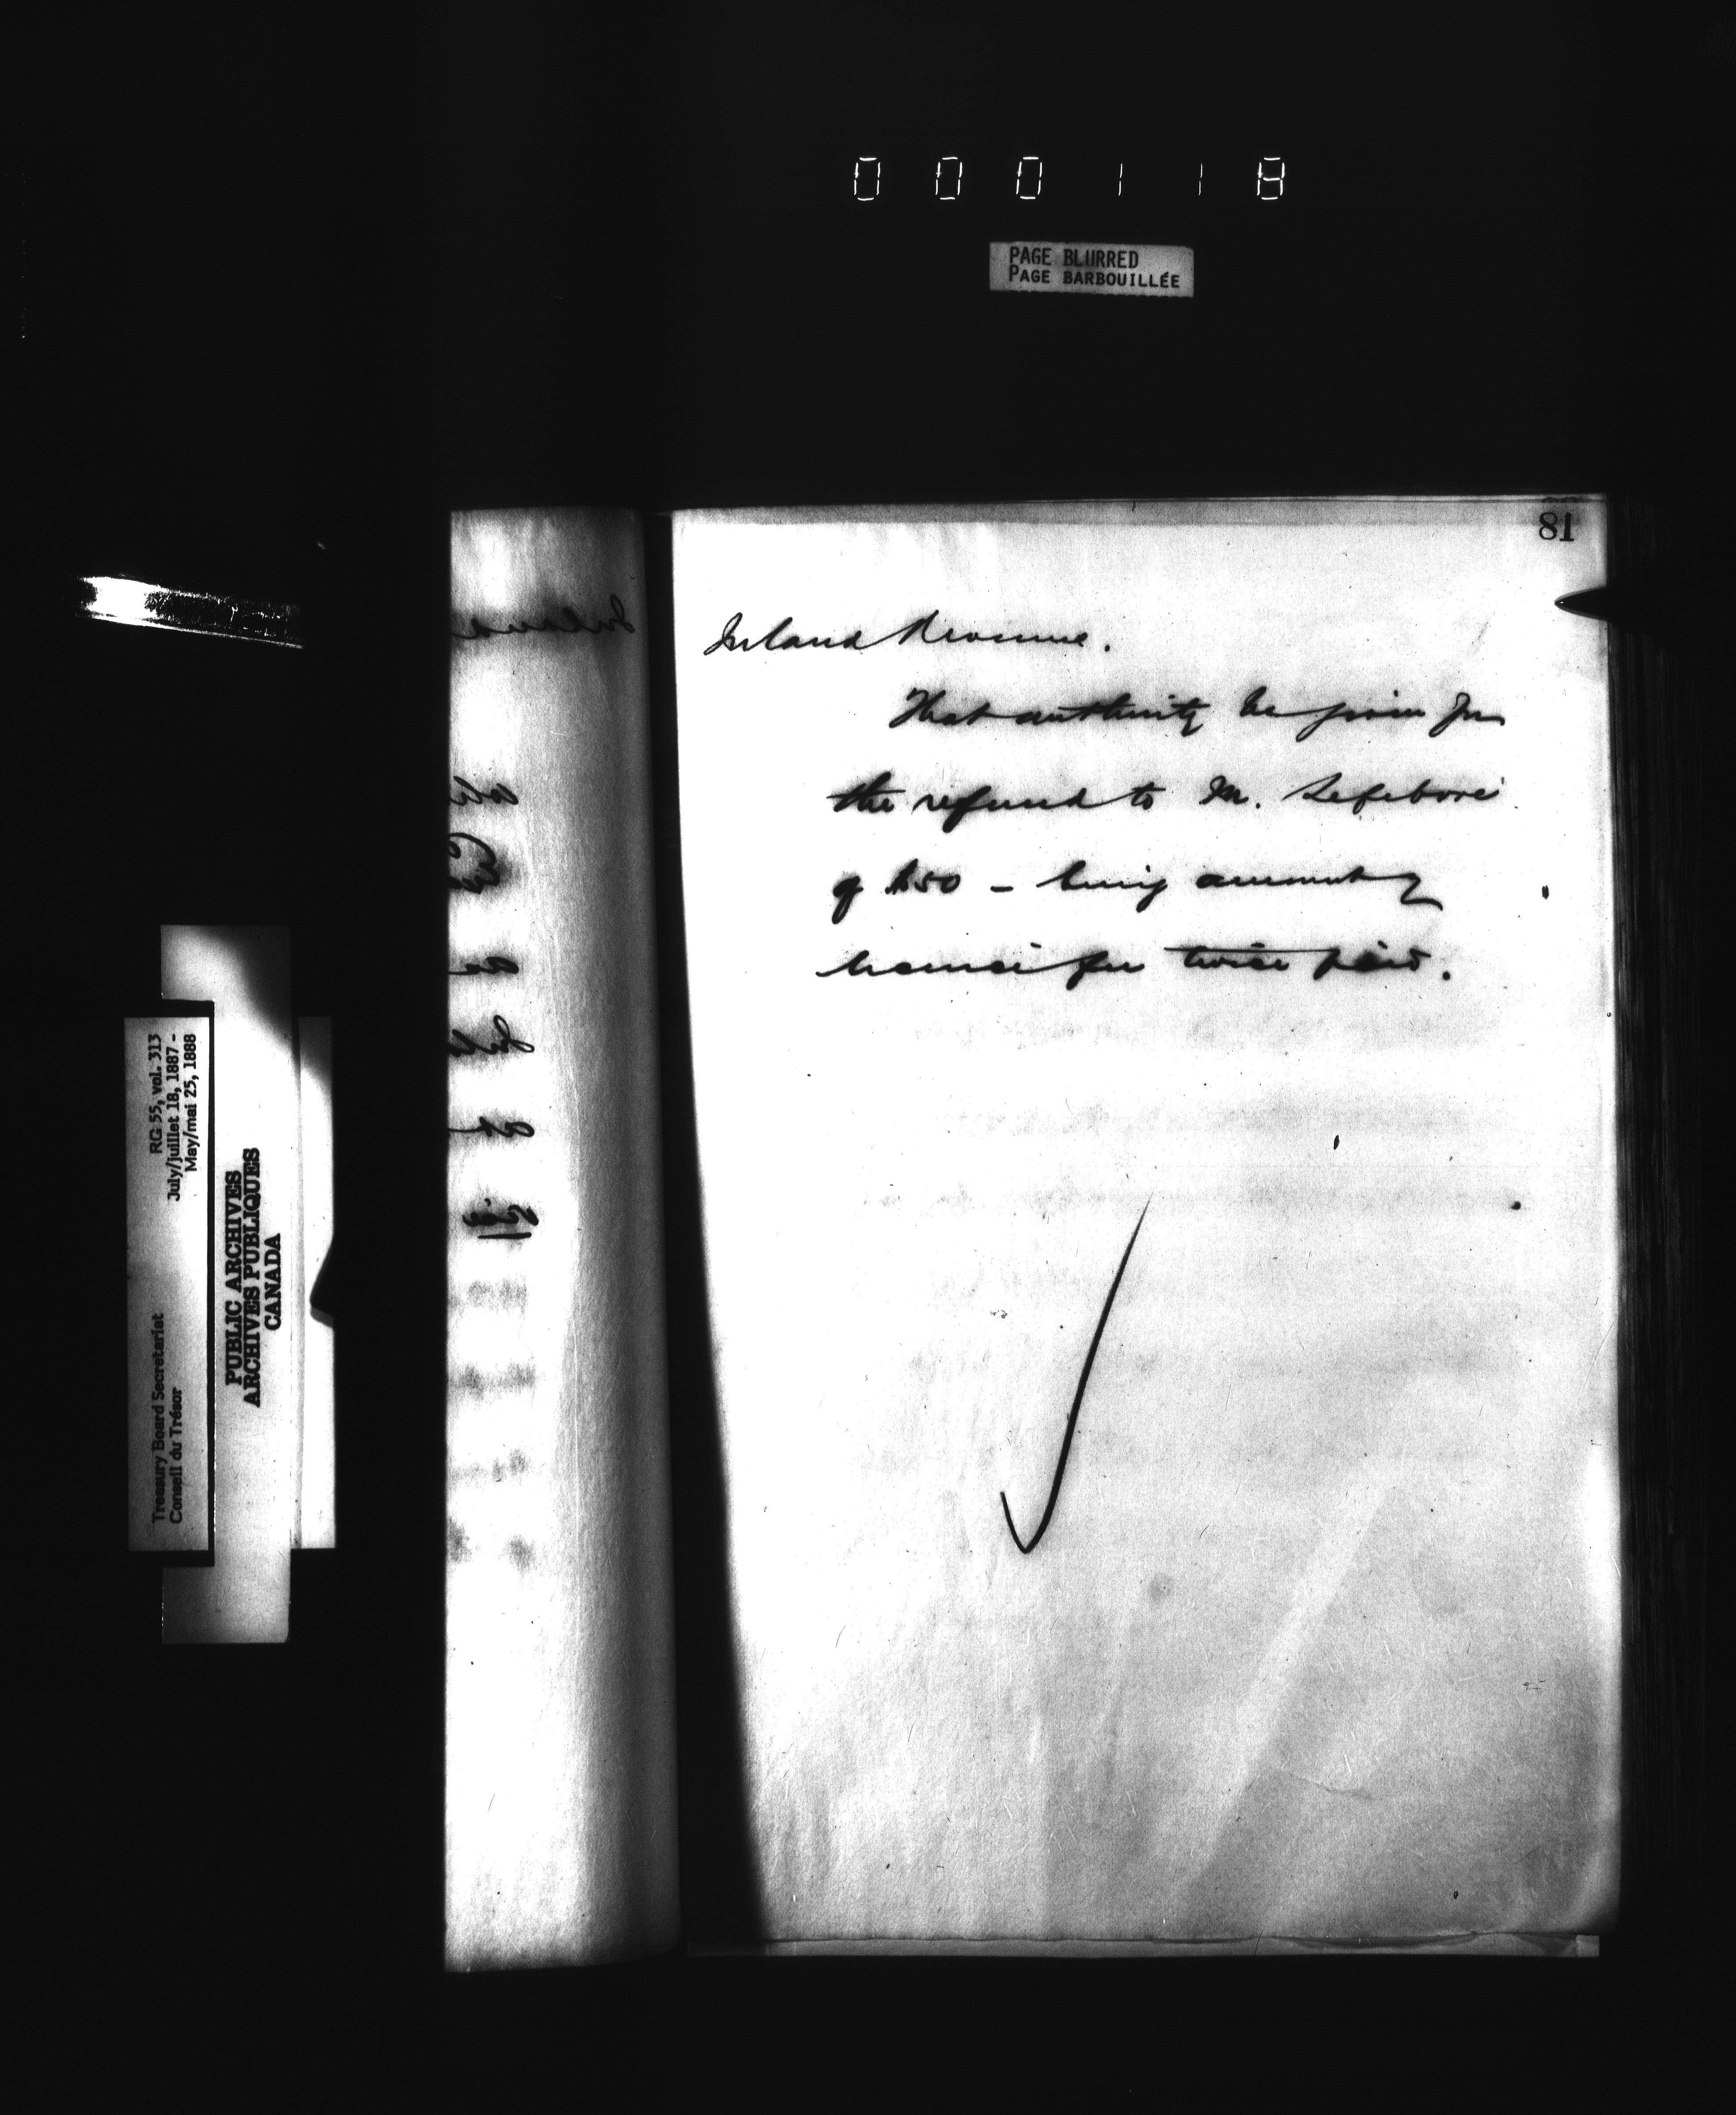 000118
PAGE BLURRED
PAGE BARBOUILLÉE
81
Inland Revenue.
That authority be given for
the refund to M. Lefebvre
of $50 - being amount of
license fee twice paid.
RG 55, vol. 313
July/juillet 18, 1887 -
May/mai 25, 1888
Treasury Board Secretariat
Conseil du Trésor
PUBLIC ARCHIVES
ARCHIVES PUBLIQUES
CANADA
Inland